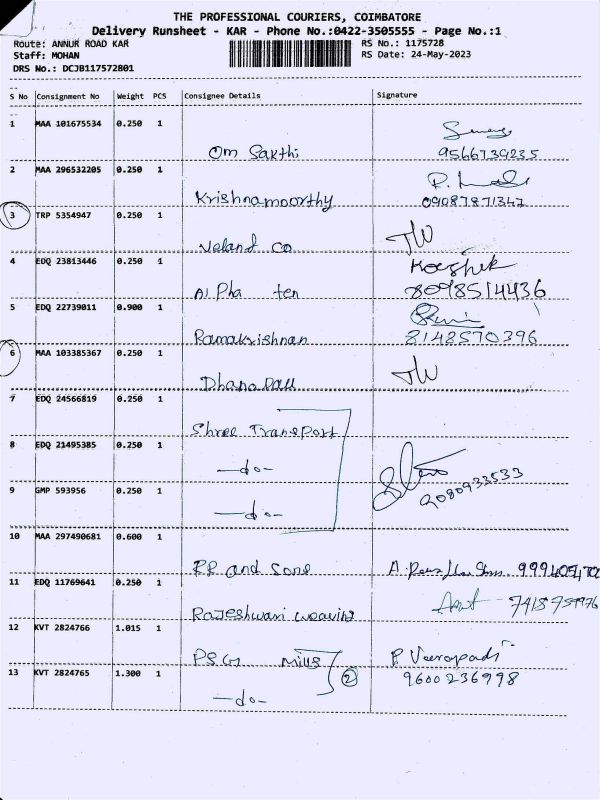 THE PROFESSIONAL COURIERS, COIMBATORE
Delivery Runsheet - KAR - Phone No.:0422-3505555 - Page No.:1
Route: ANNUR ROAD KAR RS No.: 1175728
Staff: MOHAN RS Date: 24-May-2023
DRS No.: DCJB117572801
S No Consignment No Weight PCS Consignee Details Signature
1 MAA 101675534 0.250 1
Om Sakthi 9566739235
2 MAA 296532205 0.250 1
Krishnamoorthy 09087871347
3 TRP 5354947 0.250 1
Veland co
4 EDQ 23813446 0.250 1 Koushik
Al Pha ten 8098514436
5 EDQ 22739011 0.900 1
Ramakrishnan 8148570396
6 MAA 103385367 0.250 1
Dhanapall
7 EDQ 24566819 0.250 1
Shree Transport
8 EDQ 21495385 0.250 1
-do-
9 GMP 593956 0.250 1 9080933533
-do-
10 MAA 297490681 0.600 1
RR and Sons
11 EDQ 11769641 0.250 1
Rajeshwari weaving
12 KVT 2824766 1.015 1
PSG Mills P. Veerapadi
13 KVT 2824765 1.300 1 2 9600236998
-do-